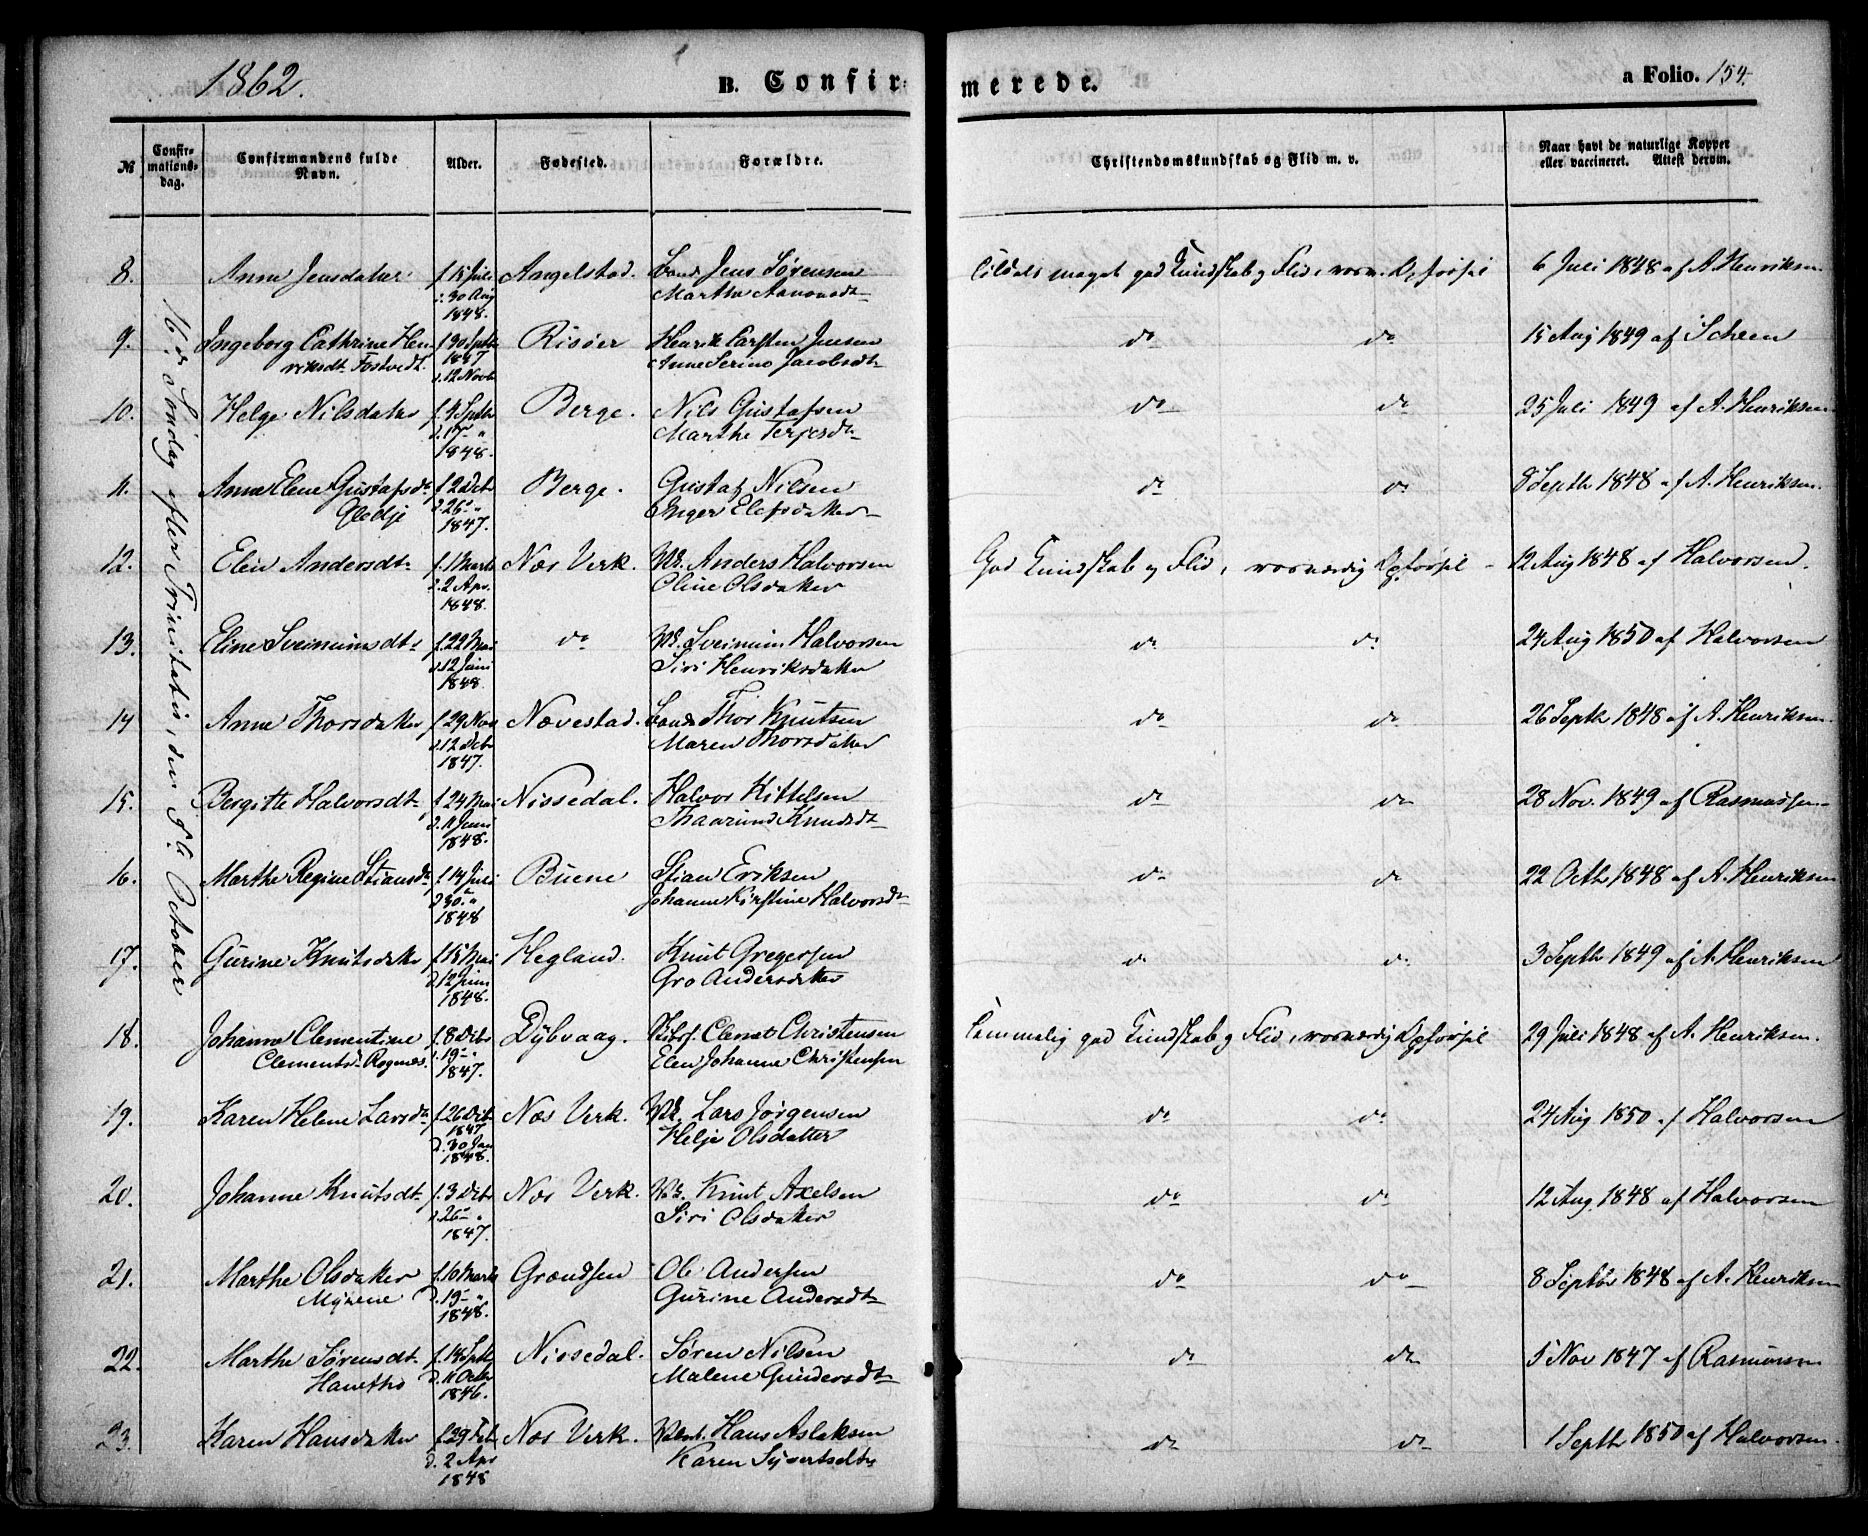 1862.
B. Confir-
merede.
a Folio. 154.
№
Confir-
mations-
dag.
Confirmandens fulde
Navn.
Alder.
Fødested.
Forældre.
Christendomskundskab og Flid m. v.
Naar havt de naturlige Kopper
eller vaccineret. Attest derom.
16de Søndag efter Trinitatis, den 5te October
8. Anne Jensdatter f. 15 Juli Angelstad. Jens Sørensen særdeles meget god Kundskab og Flid, Opførsel 6 Juli 1848 af A. Henriksen
d. 30 Aug Marthe Aanonsdt
1848.
9. Ingeborg Cathrine Hen f. 30 Septbr Risøer Henrik Carsten Jensen do do 15 Aug 1849 af Scheen
riksdt. Fostvedt. 1847 Anne Serine Jacobsdt
d. 12 Novb
10. Helge Nilsdatter f. 4 Septbr Berge. Nils Gustafsen do do 25 Juli 1849 af A. Henriksen
d. 17 - " Marthe Terjesdt
1848.
11. Anne Elene Gustafsdt f. 2 Debr Berge. Gustaf Nilsen do do 8 Septbr 1848 af A. Henriksen.
Glødje d. 26 - " Inger Elefsdatter
1847.
12. Elen Andersdt f. 1 Marts Næs Verk. Anders Halvorsen God Kundskab og Flid, vosværdig Opførsel 12 Aug 1848 af Halvorsen.
d. 2 Apr. Oline Olsdatter
1848.
13. Eline Sveinumsdt f. 22 Mai do Sveinum Halvorsen do do 24 Aug 1850 af Halvorsen
d. 12 Juni Siri Henriksdatter
1848.
14 Anne Thorsdatter f. 29 Nov Nævestad. Thor Knutsen do do 26 Septbr 1848 af A. Henriksen
d. 12 Debr Maren Thorsdatter
1847.
15. Bergitte Halvorsdt f. 24 Mai Nissedal. Halvor Kittelsen do do 28 Nov. 1849 af Rasmussen
d. 11 Juni Thaarund Knudsdt
1848.
16. Marthe Regine Stiansdt f. 14 Juli Buene Stian Eriksen do do 22 Octbr 1848 af A. Henriksen
d. 30 - " Johanne Kirstine Halvorsdt
1848
17. Gurine Knutsdatter f. 15 Mai Hegland. Knut Gregersen do do 3 Septbr 1849 af A. Henriksen
d. 12 Juni Gro Andersdatter
1848.
18. Johanne Clementine f. 8 Debr Dybvaag. Clemet Christensen Temmelig god Kundskab og Flid, vosværdig Opførsel 29 Juli 1848 af A. Henriksen.
Clementsdt Rognæs. d. 19 - " Elen Johanne Christensen
1847.
19. Karen Helene Larsdt f. 26 Debr Næs Verk. Lars Jørgensen do do 24 Aug 1850 af Halvorsen
1847 Helje Olsdatter
d. 30 Jan
1848.
20. Johanne Knutsdt f. 3 Debr Næs Verk. Knut Axelsen do do 12 Aug 1848 af Halvorsen
d. 26 - " Siri Olsdatter
1847.
21. Marthe Olsdatter f. 10 Marts Grændsen Ole Andersen do do 8 Septbr 1848 af A. Henriksen
Myrene d. 19 - " Gurine Andersdt
1848.
22. Marthe Sørensdt f. 14 Septb Nissedal. Søren Nilsen do do 5 Nov 1847 af Rasmussen
Hanetho d. 11 Octbr Malene Gundersdt
1846.
23. Karen Hansdatter f. 29 Feb Næs Verk. Hans Aslaksen do do 1 Septbr 1850 af Halvorsen.
d. 2 Apr Karen Syvertsdt
1848